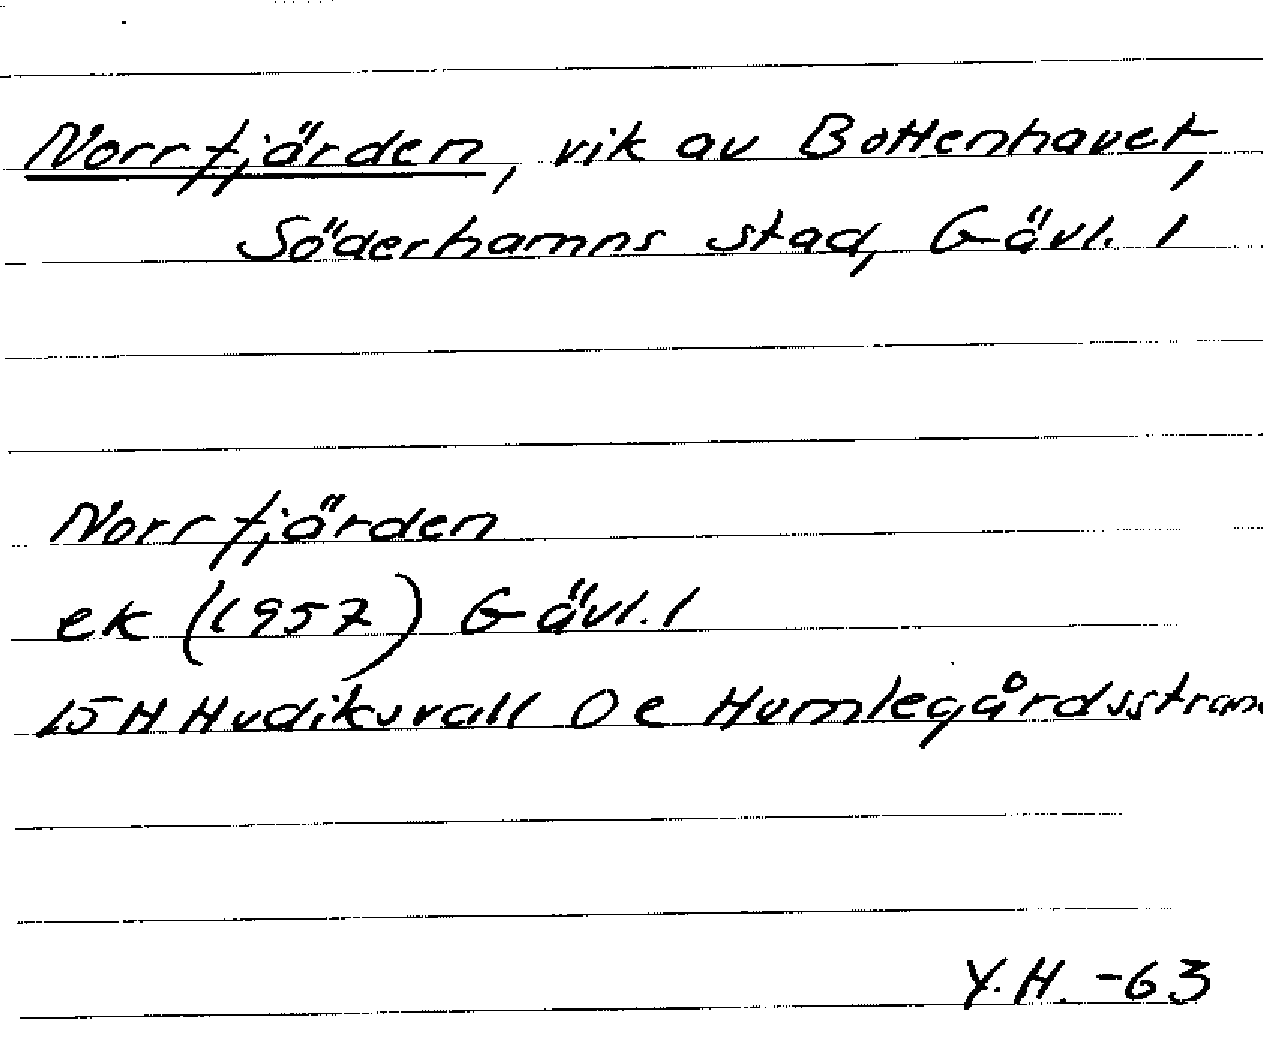 Norrfjärden, vik av Bottenhavet,
Söderhamns stad, Gävl. l
Norrfjärden
ek (1957) Gävl. l
15 H Hudiksvall 0 e Humlegårdsstran
Y.H. -63